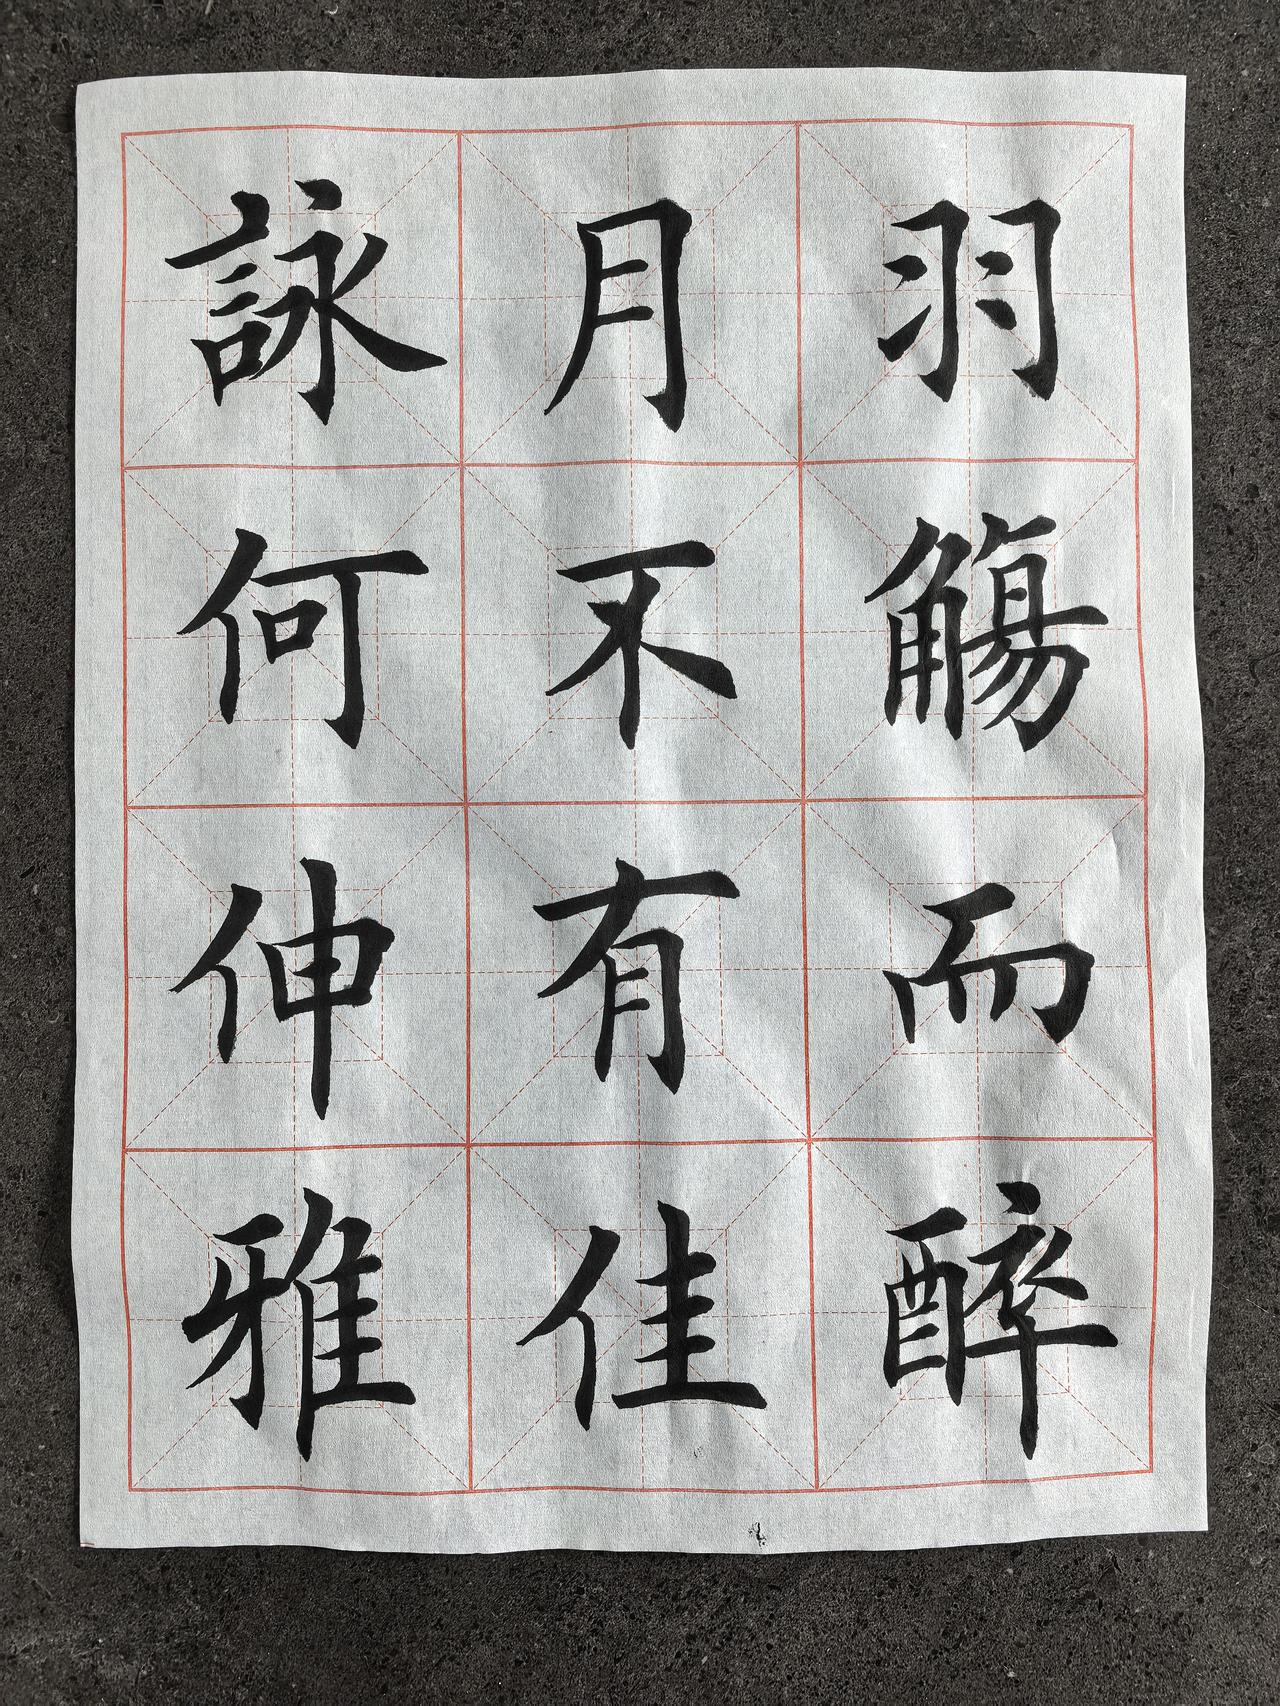 羽觴而醉
月不有佳
詠何伸雅